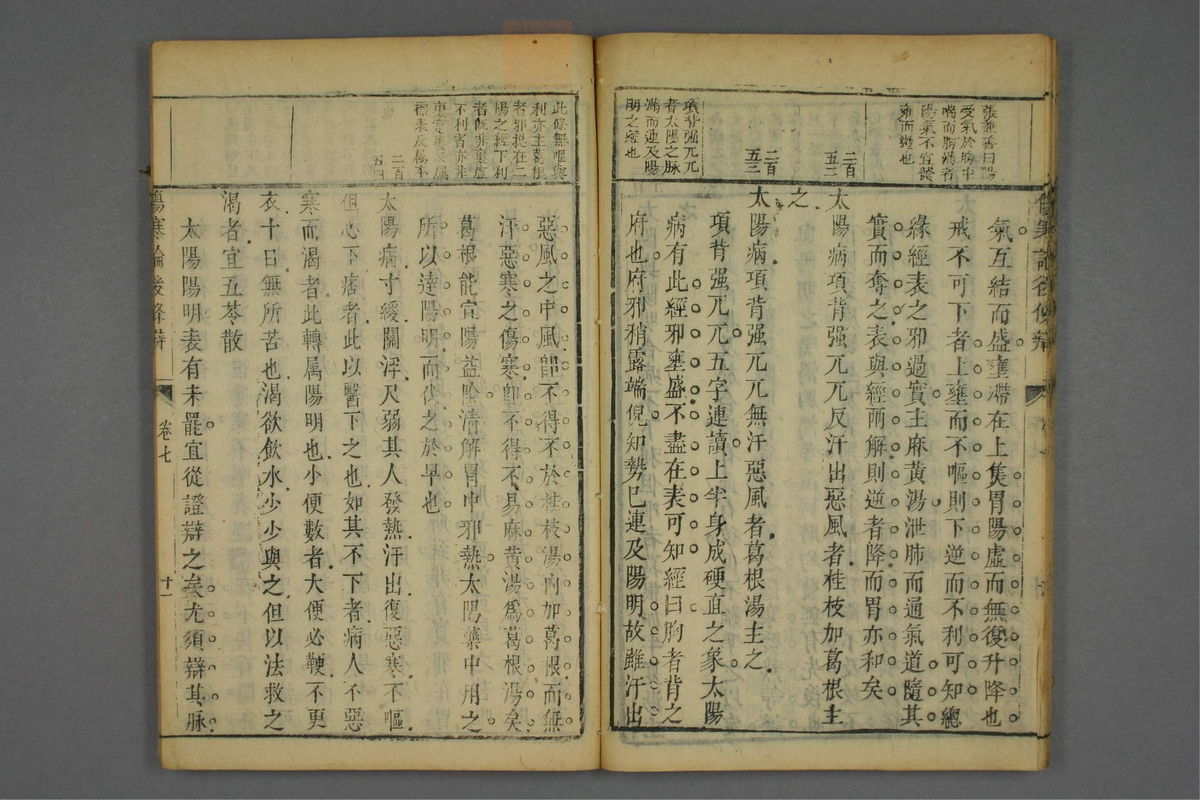 張兼善曰陽
受氣於胸中
喘而胸滿者
陽氣不宜發
壅而逆也
二百
五二
二百
五三
項背强兀兀
者太陽之脉
滿而連及陽
明之惡也
氣互結而盛壅滯在上隻胃陽虛而無復升降也
戒不可下者上壅而不嘔則下逆而不利可知總
緣經表之邪過實主麻黃湯泄肺而通氣道隨其
實而奪之表與經兩解則逆者降而胃亦和矣
太陽病項背强兀兀反汗出惡風者桂枝加葛根主
之
太陽病項背强兀兀無汗惡風者葛根湯主之
項背强兀兀五字連讀上半身成硬直之象太陽
病有此經邪壅盛不盡在表可知經曰胸者背之
府也府邪稍露端倪知勢已連及陽明故雖汗出
此條無嘔與
利亦主葛根
者邪挠在二
陽之經下利
者既非裏虛
不利者亦非
標表反爲本
二百
五四
惡風之中風卽不得不於桂枝湯內加葛根而無
汗惡寒之傷寒卽不得不易麻黃湯爲葛根湯矣
葛根能宣陽益陰清解胃中邪熱太陽藥中用之
所以達陽明而伐之於早也
太陽病寸緩關浮尺弱其人發熱汗出復惡寒不嘔
但心下痞者此以醫下之也如其不下者病人不惡
寒而渴者此轉屬陽明也小便數者大便必鞕不更
衣十日無所苦也渴欲飲水少少與之但以法救之
渴者宜五苓散
太陽陽明表有未罷宜從證辯之矣尤須辯其脉
傷寒論後條辯
卷七
十一